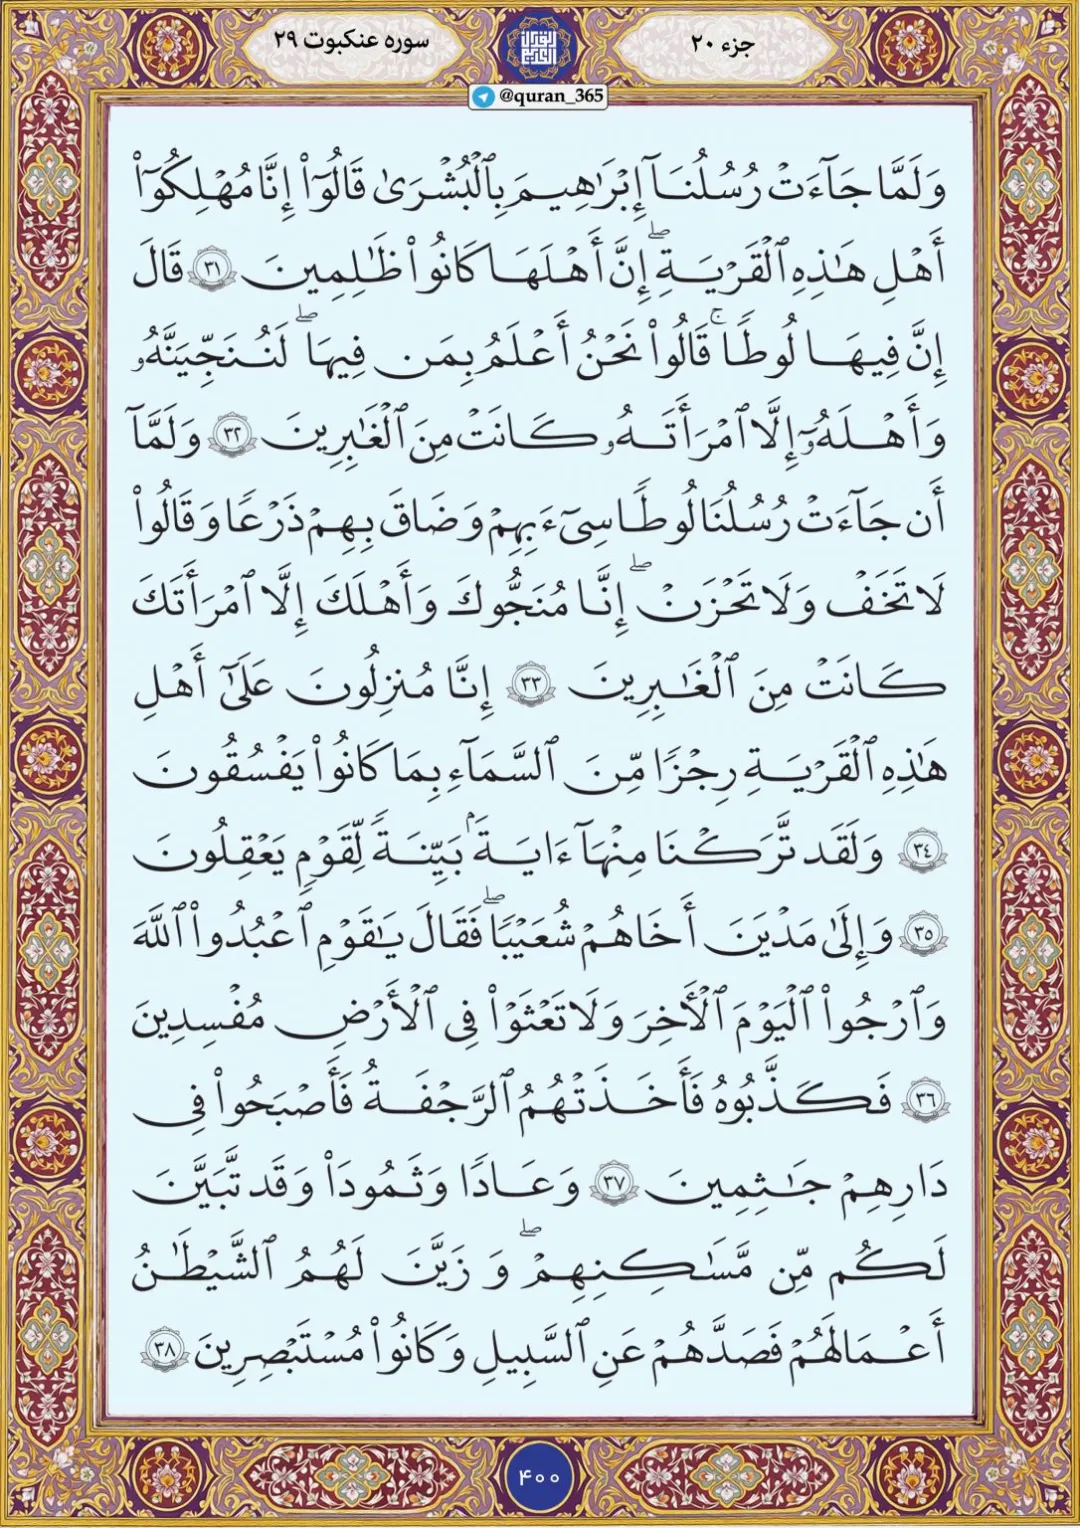 جزء ۲۰
سوره عنکبوت ۲۹
@quran_365
وَلَمَّا جَآءَتْ رُسُلُنَآ إِبْرَٰهِيمَ بِٱلْبُشْرَىٰ قَالُوٓا۟ إِنَّا مُهْلِكُوٓا۟
أَهْلِ هَٰذِهِ ٱلْقَرْيَةِ ۖ إِنَّ أَهْلَهَا كَانُوا۟ ظَٰلِمِينَ ٣١ قَالَ
إِنَّ فِيهَا لُوطًا ۚ قَالُوا۟ نَحْنُ أَعْلَمُ بِمَن فِيهَا ۖ لَنُنَجِّيَنَّهُۥ
وَأَهْلَهُۥٓ إِلَّا ٱمْرَأَتَهُۥ كَانَتْ مِنَ ٱلْغَٰبِرِينَ ٣٢ وَلَمَّآ
أَن جَآءَتْ رُسُلُنَا لُوطًا سِىٓءَ بِهِمْ وَضَاقَ بِهِمْ ذَرْعًا وَقَالُوا۟
لَا تَخَفْ وَلَا تَحْزَنْ ۖ إِنَّا مُنَجُّوكَ وَأَهْلَكَ إِلَّا ٱمْرَأَتَكَ
كَانَتْ مِنَ ٱلْغَٰبِرِينَ ٣٣ إِنَّا مُنزِلُونَ عَلَىٰٓ أَهْلِ
هَٰذِهِ ٱلْقَرْيَةِ رِجْزًا مِّنَ ٱلسَّمَآءِ بِمَا كَانُوا۟ يَفْسُقُونَ
٣٤ وَلَقَد تَّرَكْنَا مِنْهَآ ءَايَةَۢ بَيِّنَةً لِّقَوْمٍ يَعْقِلُونَ
٣٥ وَإِلَىٰ مَدْيَنَ أَخَاهُمْ شُعَيْبًا ۖ فَقَالَ يَٰقَوْمِ ٱعْبُدُوا۟ ٱللَّهَ
وَٱرْجُوا۟ ٱلْيَوْمَ ٱلْأَخِرَ وَلَا تَعْثَوْا۟ فِى ٱلْأَرْضِ مُفْسِدِينَ
٣٦ فَكَذَّبُوهُ فَأَخَذَتْهُمُ ٱلرَّجْفَةُ فَأَصْبَحُوا۟ فِى
دَارِهِمْ جَٰثِمِينَ ٣٧ وَعَادًا وَثَمُودَا۟ وَقَد تَّبَيَّنَ
لَكُم مِّن مَّسَٰكِنِهِمْ ۖ وَزَيَّنَ لَهُمُ ٱلشَّيْطَٰنُ
أَعْمَٰلَهُمْ فَصَدَّهُمْ عَنِ ٱلسَّبِيلِ وَكَانُوا۟ مُسْتَبْصِرِينَ ٣٨
۴۰۰